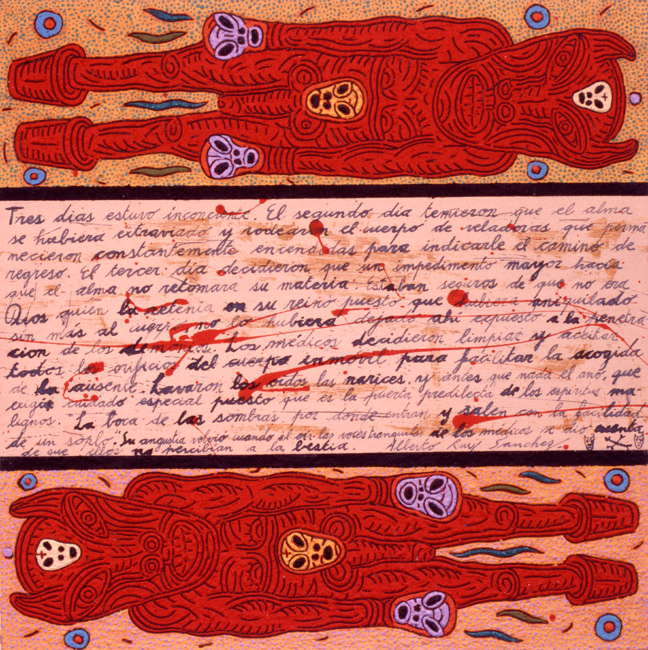 Tres dias estuvo inconciente. El segundo dia temieron que el alma
se hubiera extraviado y rodearon el cuerpo de veladoras que perma
necieron constantemente encendidas para indicarle el camino de
regreso. El tercer dia decidieron que un impedimento mayor hacia
que el alma no retomara su materia. Estaban seguros de que no era
Dios quien la retenia en su reino puesto que hubiera aniquilado
sin más al cuerpo, no lo hubiera dejado ahi expuesto a la penetra
cion de los demonios. Los médicos decidieron limpiar y aceitar
todos los orificios del cuerpo inmovil para facilitar la acogida
de la ausente. Lavaron los oidos las narices, y antes que nada el ano, que
exigia cuidado especial puesto que es la puerta predilecta de los espiritus ma
lignos. La boca de las sombras por donde entran y salen con la facilidad
de un soplo. Su angustia volvio cuando al oir las voces tranquilas de los médicos se dio cuenta
de que ellos no percibian a la bestia. Alberto Ruy Sánchez